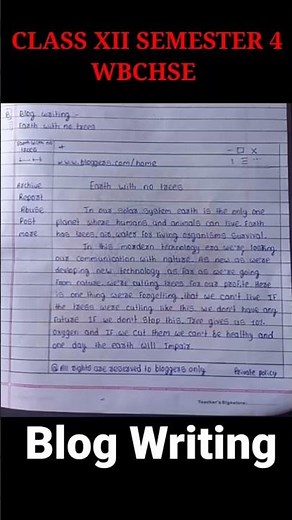 CLASS XII SEMESTER 4
WBCHSE
Blog writing :-
Earth with no trees
Earth with no
trees
+
- □ X
www.bloggers.com/home
Archive
Earth with no trees
Report
Abuse
In our solar system earth is the only one
Post
planet where humans and animals can live. Earth
more
has trees, air, water for living organisms survival.
In this mordern technology era we're losking
our communication with nature. As new as we're
devoping new technology as far as we're going
from nature. we're cutting trees for our profite. Here
is one thing we're forgetting, that we can't live If
the tress were cutting like this. we don't have any
future If we don't stop this. Tree gives us 10%
oxygen and if we cut them we can't be healthy and
one day the earth will impair.
@ All rights are reserved to bloggers only
Private policy
Teacher's Signature
Blog Writing